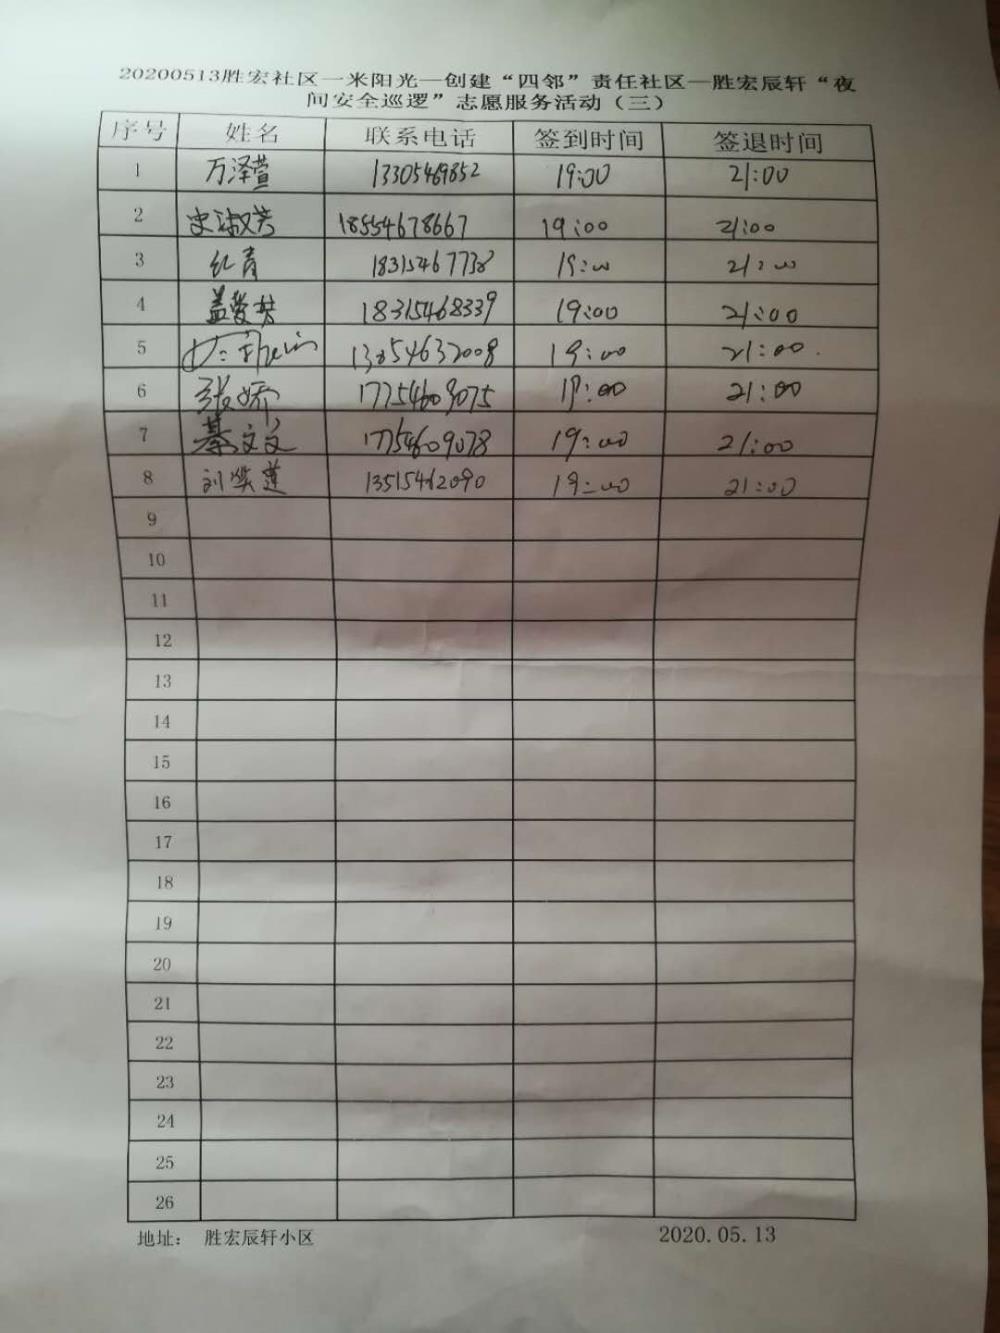 20200513胜宏社区一米阳光—创建“四邻”责任社区—胜宏辰轩“夜
间安全巡逻”志愿服务活动（三）
序号 姓名 联系电话 签到时间 签退时间
1 万泽萱 13305469852 19:00 21:00
2 史淑芳 18554678667 19:00 21:00
3 红青 18315467738 19:00 21:00
4 盖爱芳 18315468339 19:00 21:00
5 19:00 21:00
6 张娇 17754609075 19:00 21:00
7 綦文文 17754609078 19:00 21:00
8 刘 莲 13515462090 19:00 21:00
9
10
11
12
13
14
15
16
17
18
19
20
21
22
23
24
25
26
地址： 胜宏辰轩小区 2020.05.13